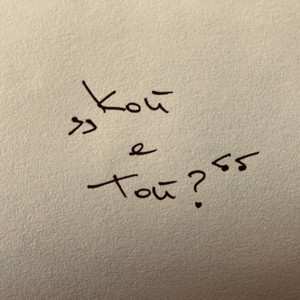 „Кой
е
той?“